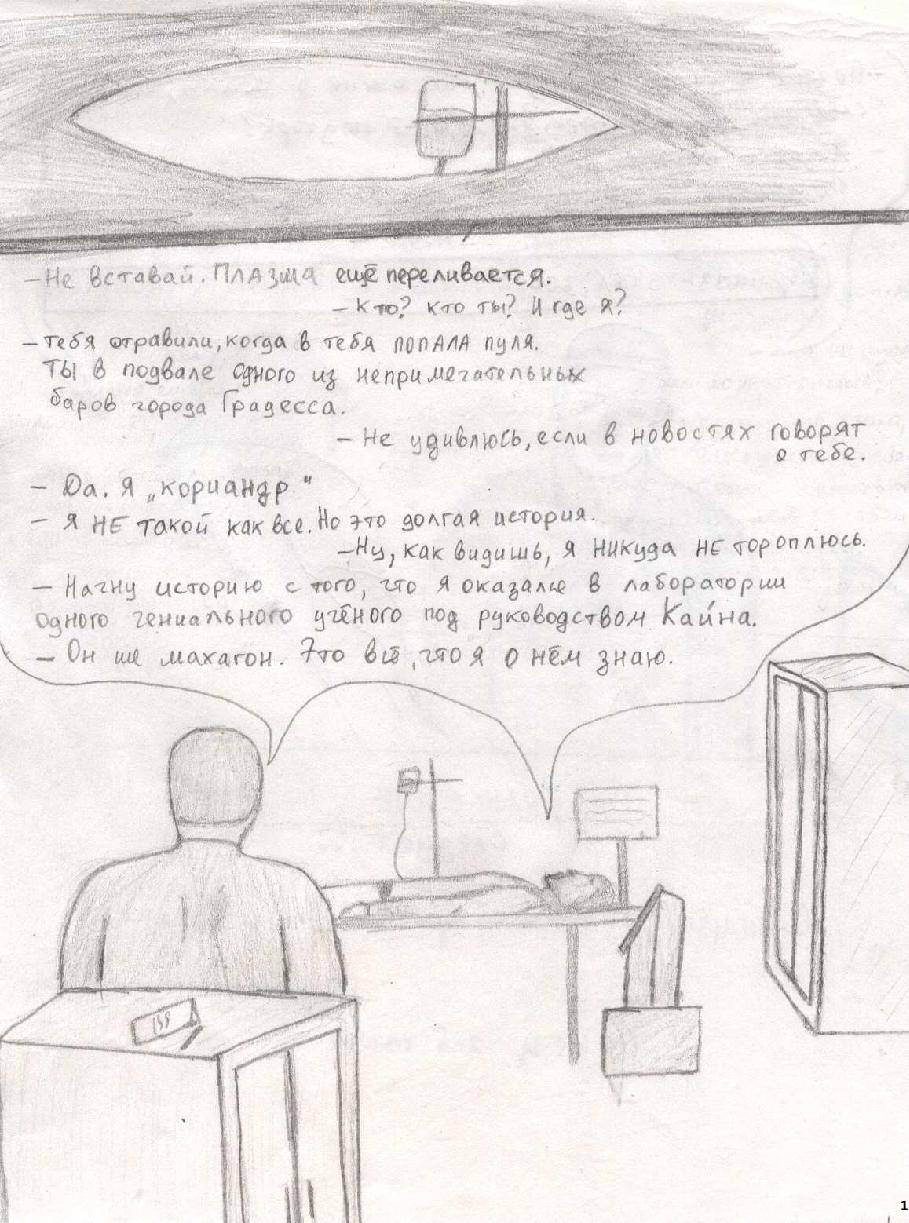 — Не вставай. Плазма ещё переливается.
— Кто? кто ты? И где я?
— тебя отравили, когда в тебя попала пуля.
Ты в подвале одного из непримечательных
баров города Градесса.
— Не удивлюсь, если в новостях говорят
о тебе.
— Да. Я „кориандр"
— Я НЕ такой как все. Но это долгая история.
— Ну, как видишь, я никуда не тороплюсь.
— Начну историю с того, что я оказался в лаборатории
одного гениального учёного под руководством Каина.
— Он же махагон. Это всё, что я о нём знаю.
1